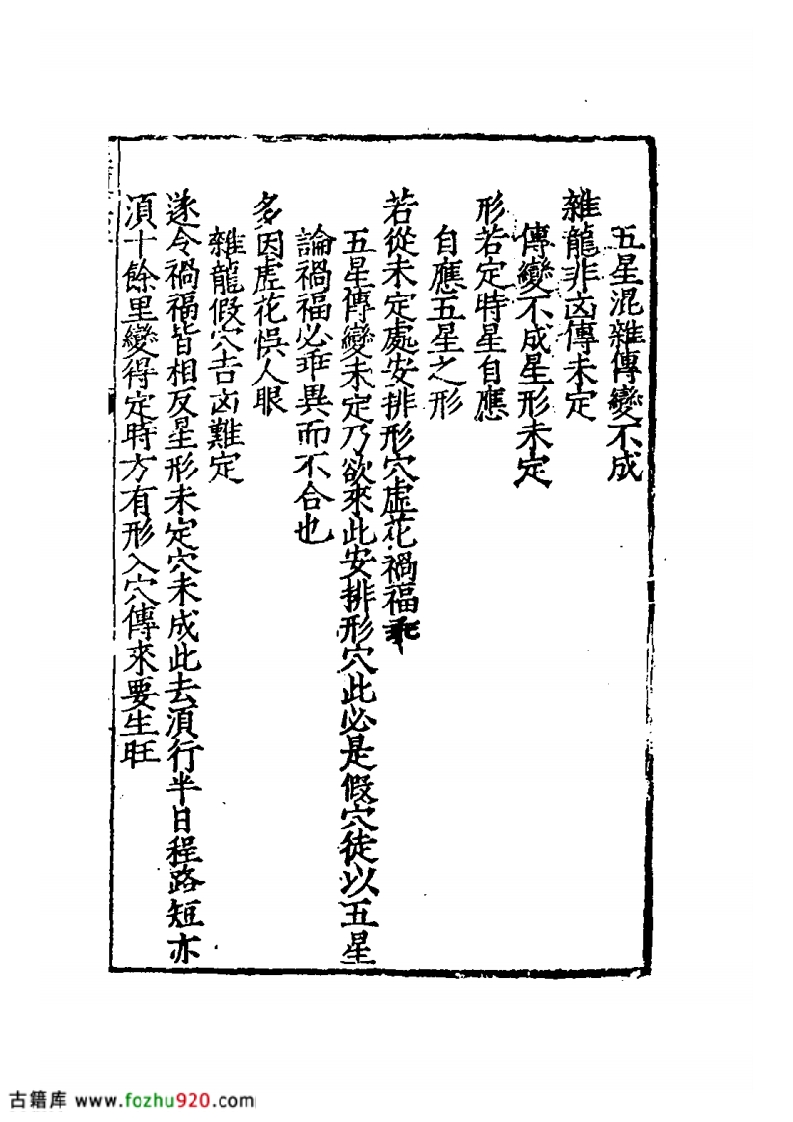 五星混雜傳變不成
雜龍非凶傳未定
傳變不成星形未定
形若定時星自應
自應五星之形
若從未定處安排形穴虛花禍福乖
五星傳變未定乃欲來此安排形穴此必是假穴徒以五星
論禍福必乖異而不合也
多因虛花悞人眼
雜龍假穴吉凶難定
遂令禍福皆相反星形未定穴未成此去湏行半日程路短亦
湏十餘里變得定時方有形入穴傳來要生旺
古籍库 www.fozhu920.com